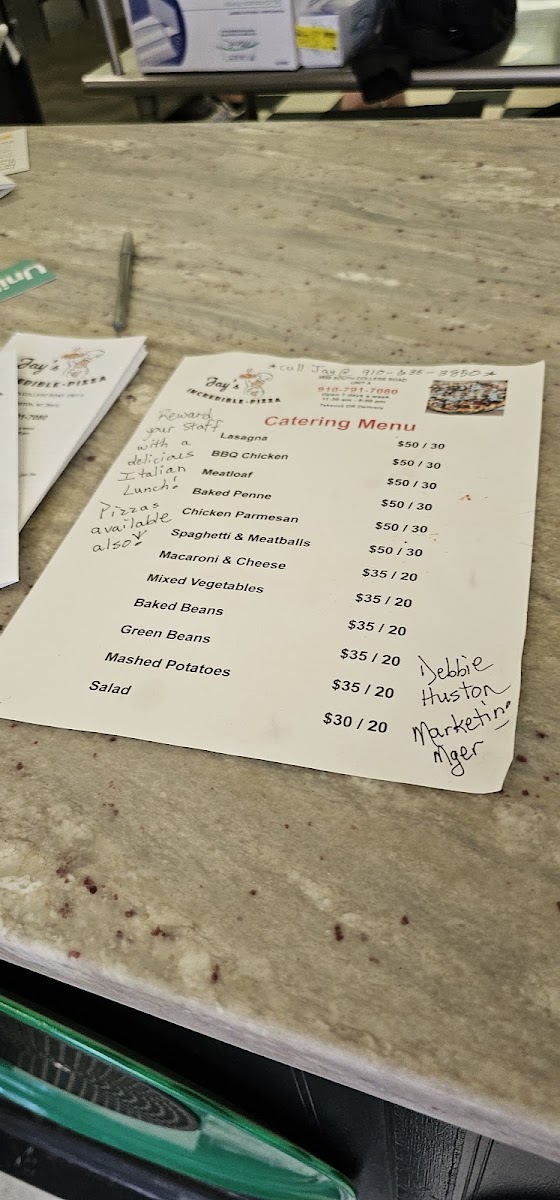 Uni
Jay's
INCREDIBLE-PIZZA
*Call Jay @ 910-635-3850*
UNIT A
910-791-7080
Open 7 days a week
11:30 am - 8:00 pm
Takeout OR Delivery
Catering Menu
Reward
your Staff
with a
delicious
Italian
Lunch!
Pizzas
available
also!
Lasagna $50 / 30
BBQ Chicken $50 / 30
Meatloaf $50 / 30
Baked Penne $50 / 30
Chicken Parmesan $50 / 30
Spaghetti & Meatballs $50 / 30
Macaroni & Cheese $35 / 20
Mixed Vegetables $35 / 20
Baked Beans $35 / 20
Green Beans $35 / 20
Mashed Potatoes $35 / 20
Salad $30 / 20
Debbie
Huston
Marketing
Mger
Jay's
EDIBLE-PIZZA